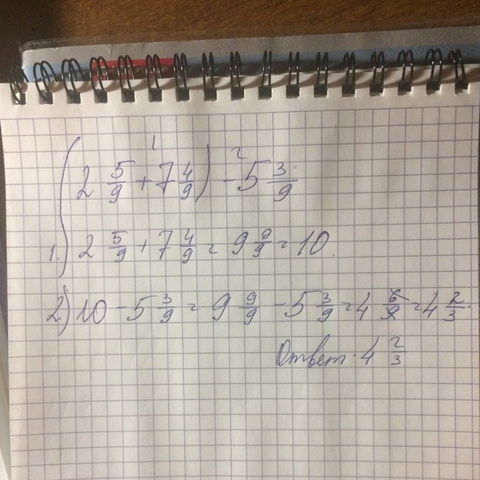 1 2
(2 5/9 + 7 4/9) - 5 3/9
1.) 2 5/9 + 7 4/9 = 9 9/9 = 10.
2) 10 - 5 3/9 = 9 9/9 - 5 3/9 = 4 6/9 = 4 2/3.
Ответ: 4 2/3